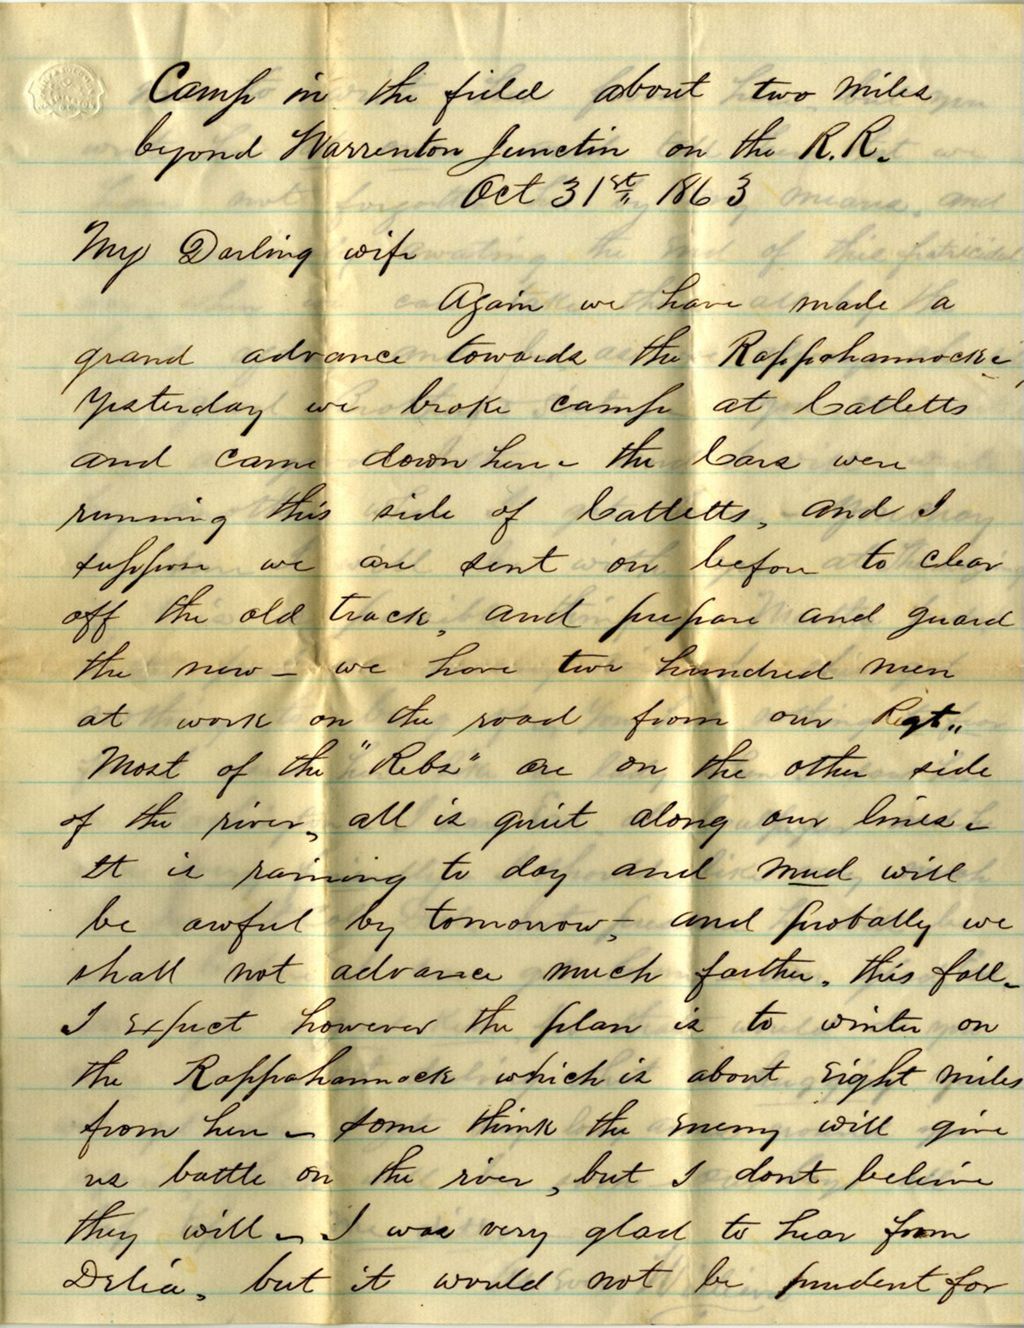 Camp in the field about two miles
beyond Warrenton Junctin on the R.R.
Oct 31st 1863
My Darling wife
Again we have made a
grand advance towards the Rappahannocke,
Yesterday we broke camp at Catletts
and came down here - the Cars were
running this side of Catletts, and I
suppose we are sent on before to clear
off the old track, and prepare and guard
the new - we have two hundred men
at work on the road from our Regt..
Most of the "Rebs" are on the other side
of the river, all is quiet along our lines -
It is raining to day and mud will
be awful by tomorrow, - and probally we
shall not advance much farther, this fall -
I expect however the plan is to winter on
the Rappahannock which is about eight miles
from here - some think the enemy will give
us battle on the river, but I dont believe
they will - I was very glad to hear from
Delia, but it would not be prudent for